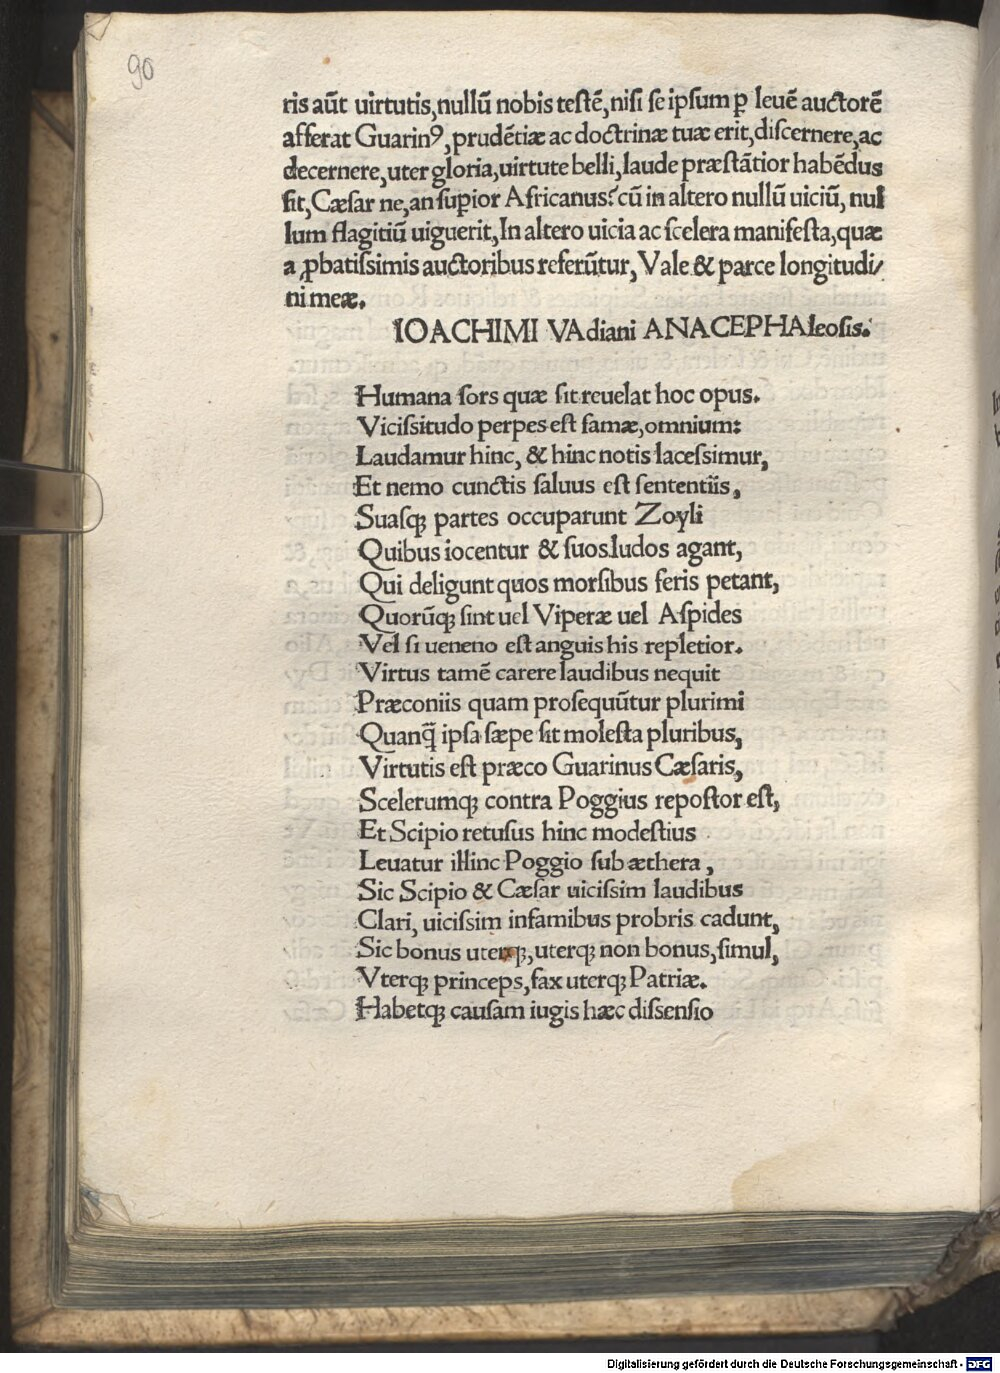 90
ris aūt uirtutis, nullū nobis testē, nisi se ipsum ꝑ leuē auctorē
afferat Guarinꝰ, prudētiæ ac doctrinæ tuæ erit, discernere, ac
decernere, uter gloria, uirtute belli, laude præstātior habēdus
sit, Cæsar ne, an supior Africanus? cū in altero nullū uiciū, nul
lum flagitiū uiguerit, In altero uicia ac scelera manifesta, quæ
a ꝓbatissimis auctoribus referūtur, Vale & parce longitudi/
ni meæ.
IOACHIMI VAdiani ANACEPHAleosis.
Humana sors quæ sit reuelat hoc opus.
Vicissitudo perpes est famæ, omnium:
Laudamur hinc, & hinc notis lacessimur,
Et nemo cunctis saluus est sententiis,
Suasqꝫ partes occuparunt Zoyli
Quibus iocentur & suos ludos agant,
Qui deligunt quos morsibus feris petant,
Quorūqꝫ sint uel Viperæ uel Aspides
Vel si ueneno est anguis his repletior.
Virtus tamē carere laudibus nequit
Præconiis quam prosequūtur plurimi
Quanq̄ ipsa sæpe sit molesta pluribus,
Virtutis est præco Guarinus Cæsaris,
Scelerumqꝫ contra Poggius repostor est,
Et Scipio retusus hinc modestius
Leuatur illinc Poggio sub æthera,
Sic Scipio & Cæsar uicissim laudibus
Clari, uicissim infamibus probris cadunt,
Sic bonus uterqꝫ, uterqꝫ non bonus, simul,
Vterqꝫ princeps, fax uterqꝫ Patriæ.
Habetqꝫ causam iugis hæc dissensio
Digitalisierung gefördert durch die Deutsche Forschungsgemeinschaft - DFG